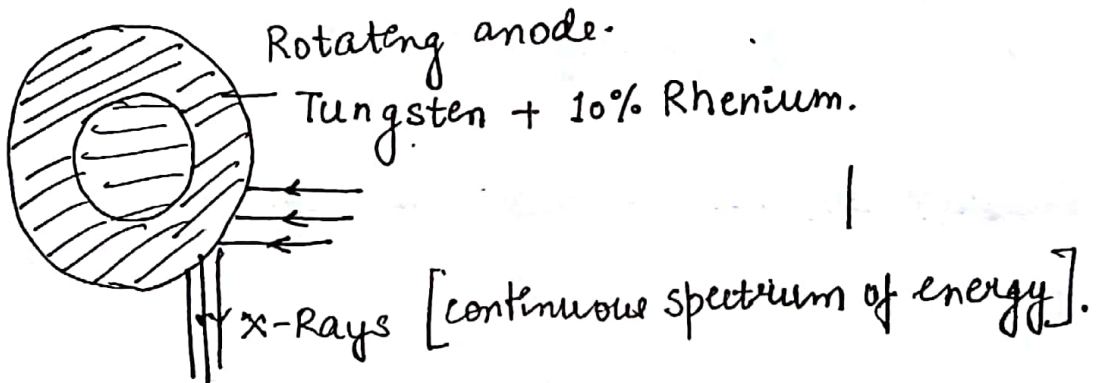 Rotating anode.
Tungsten + 10% Rhenium.
X-Rays [continuous spectrum of energy].